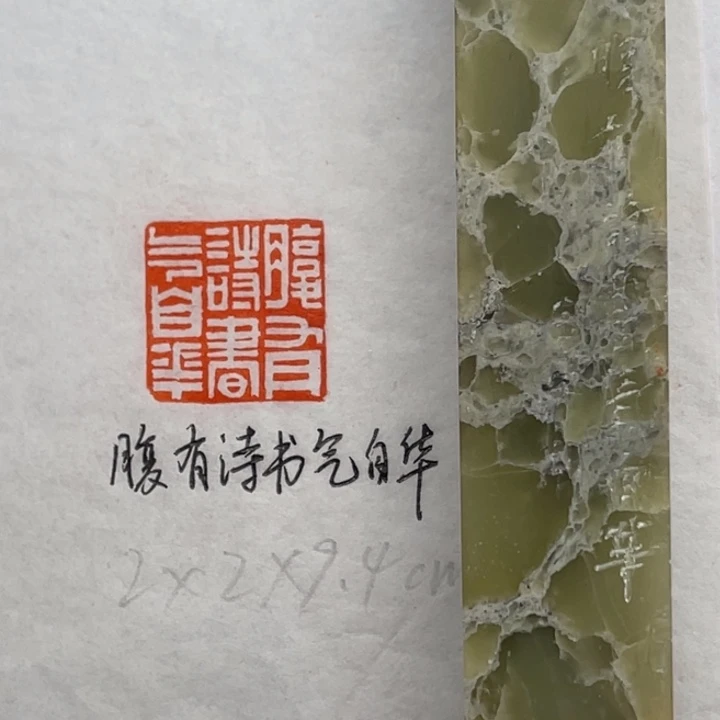 腹有詩書气自華
腹有诗书气自华
2×2×9.4cm
華